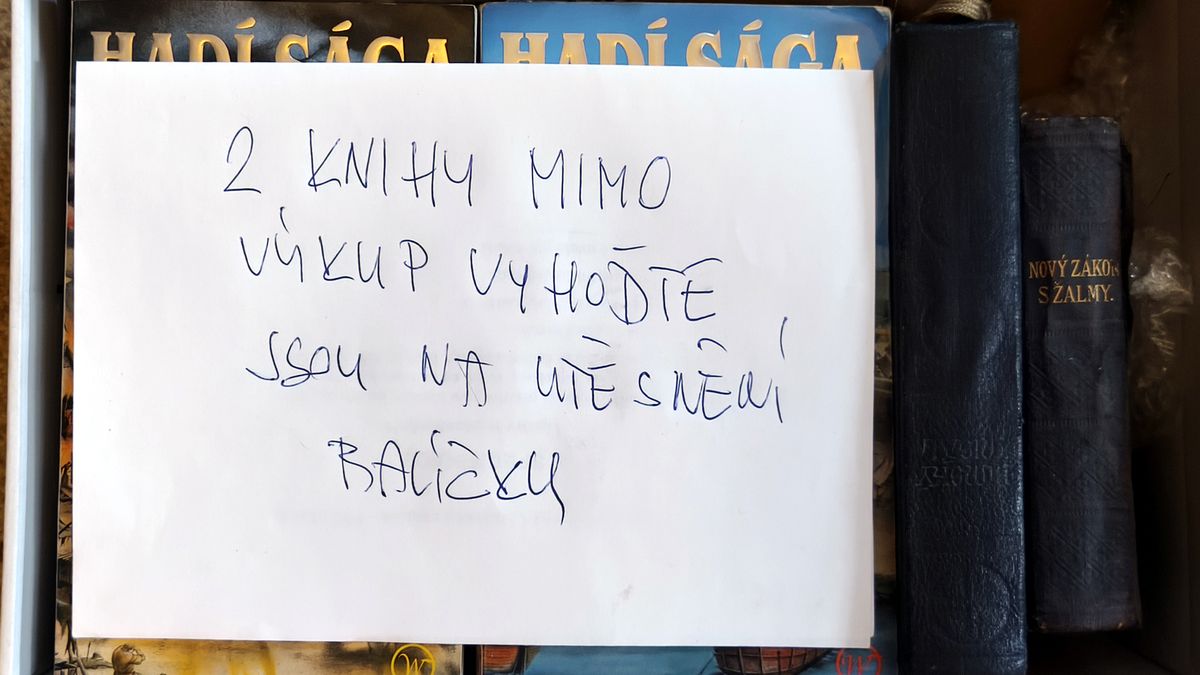 HADÍ SÁGA
HADÍ SÁGA
2 KNIHY MIMO
VÝKUP VYHOĎTE
JSOU NA UTĚSNĚNÍ
BALÍČKU
NOVÝ ZÁKON
S ŽALMY.
W
W